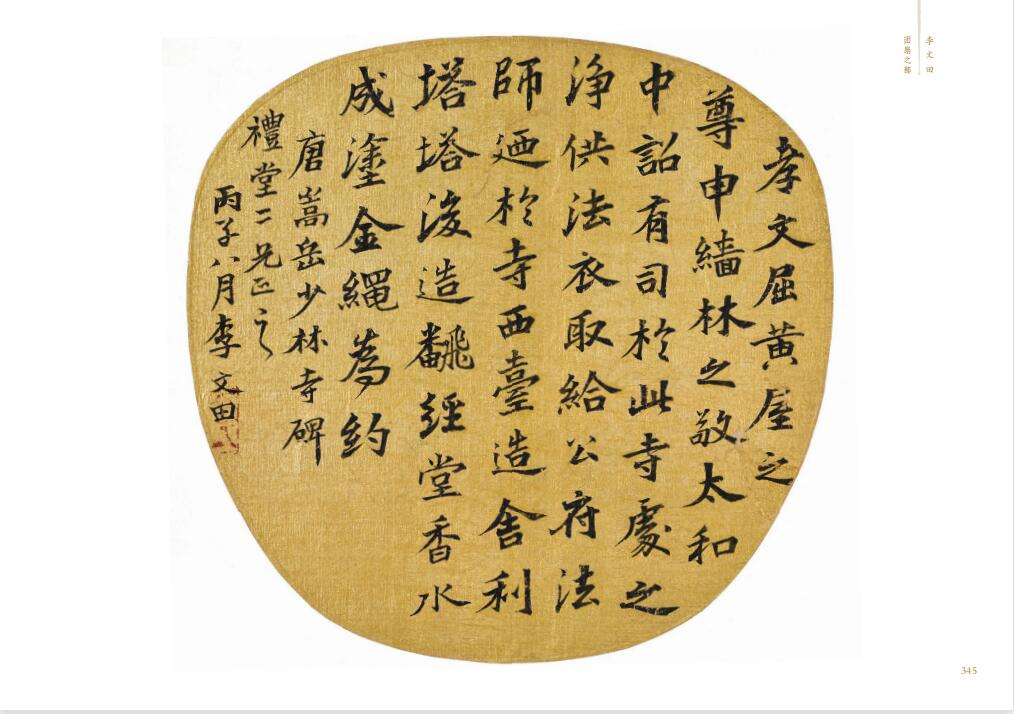 孝文屈黃屋之
尊申繙林之敬太和
中詔有司於此寺處之
淨供法衣取給公府法
師廼於寺西臺造舍利
塔塔後造飜經堂香水
成塗金繩為約
唐嵩岳少林寺碑
禮堂二兄正之
丙子八月李文田
李文田
团扇之部
345